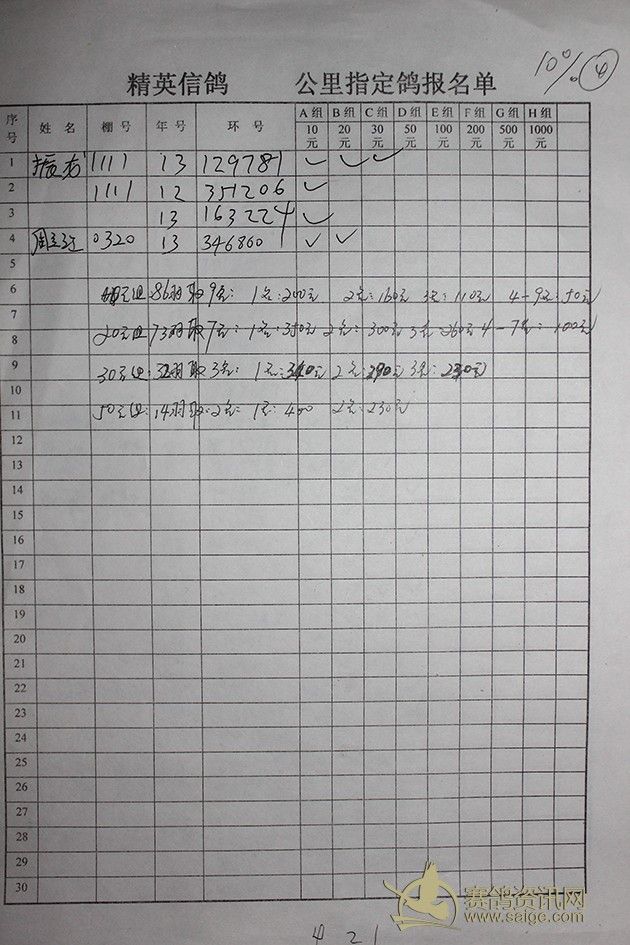 10% ④
精英信鸽 公里指定鸽报名单
序号 姓名 棚号 年号 环号 A组 B组 C组 D组 E组 F组 G组 H组
10元 20元 30元 50元 100元 200元 500元 1000元
1 1111 13 129781 ✓ ✓ ✓
2 1111 12 351206 ✓
3 13 163224 ✓
4 0320 13 346860 ✓ ✓
5
6 86羽取9名: 1名:200元 2名:160元 3名:110元 4-9名:50元
7
8 20元组73羽取7名: 1名:350元 2名:300元 3名:260元 4-7名:100元
9 30元组:32羽取3名: 1名:340元 2名:290元 3名:230元
10
11 50元组:14羽取:2名: 1名:400 2名:230元
12
13
14
15
16
17
18
19
20
21
22
23
24
25
26
27
28
29
30
赛鸽资讯网
www.saige.com
4 21